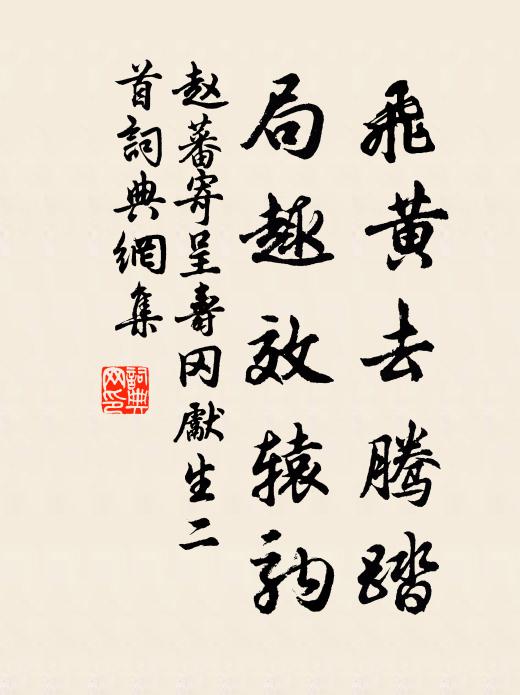 飛黄去腾踏
局趣效辕駒
赵蕃寄呈壽冈獻生二
首詞典網集
詞典網印